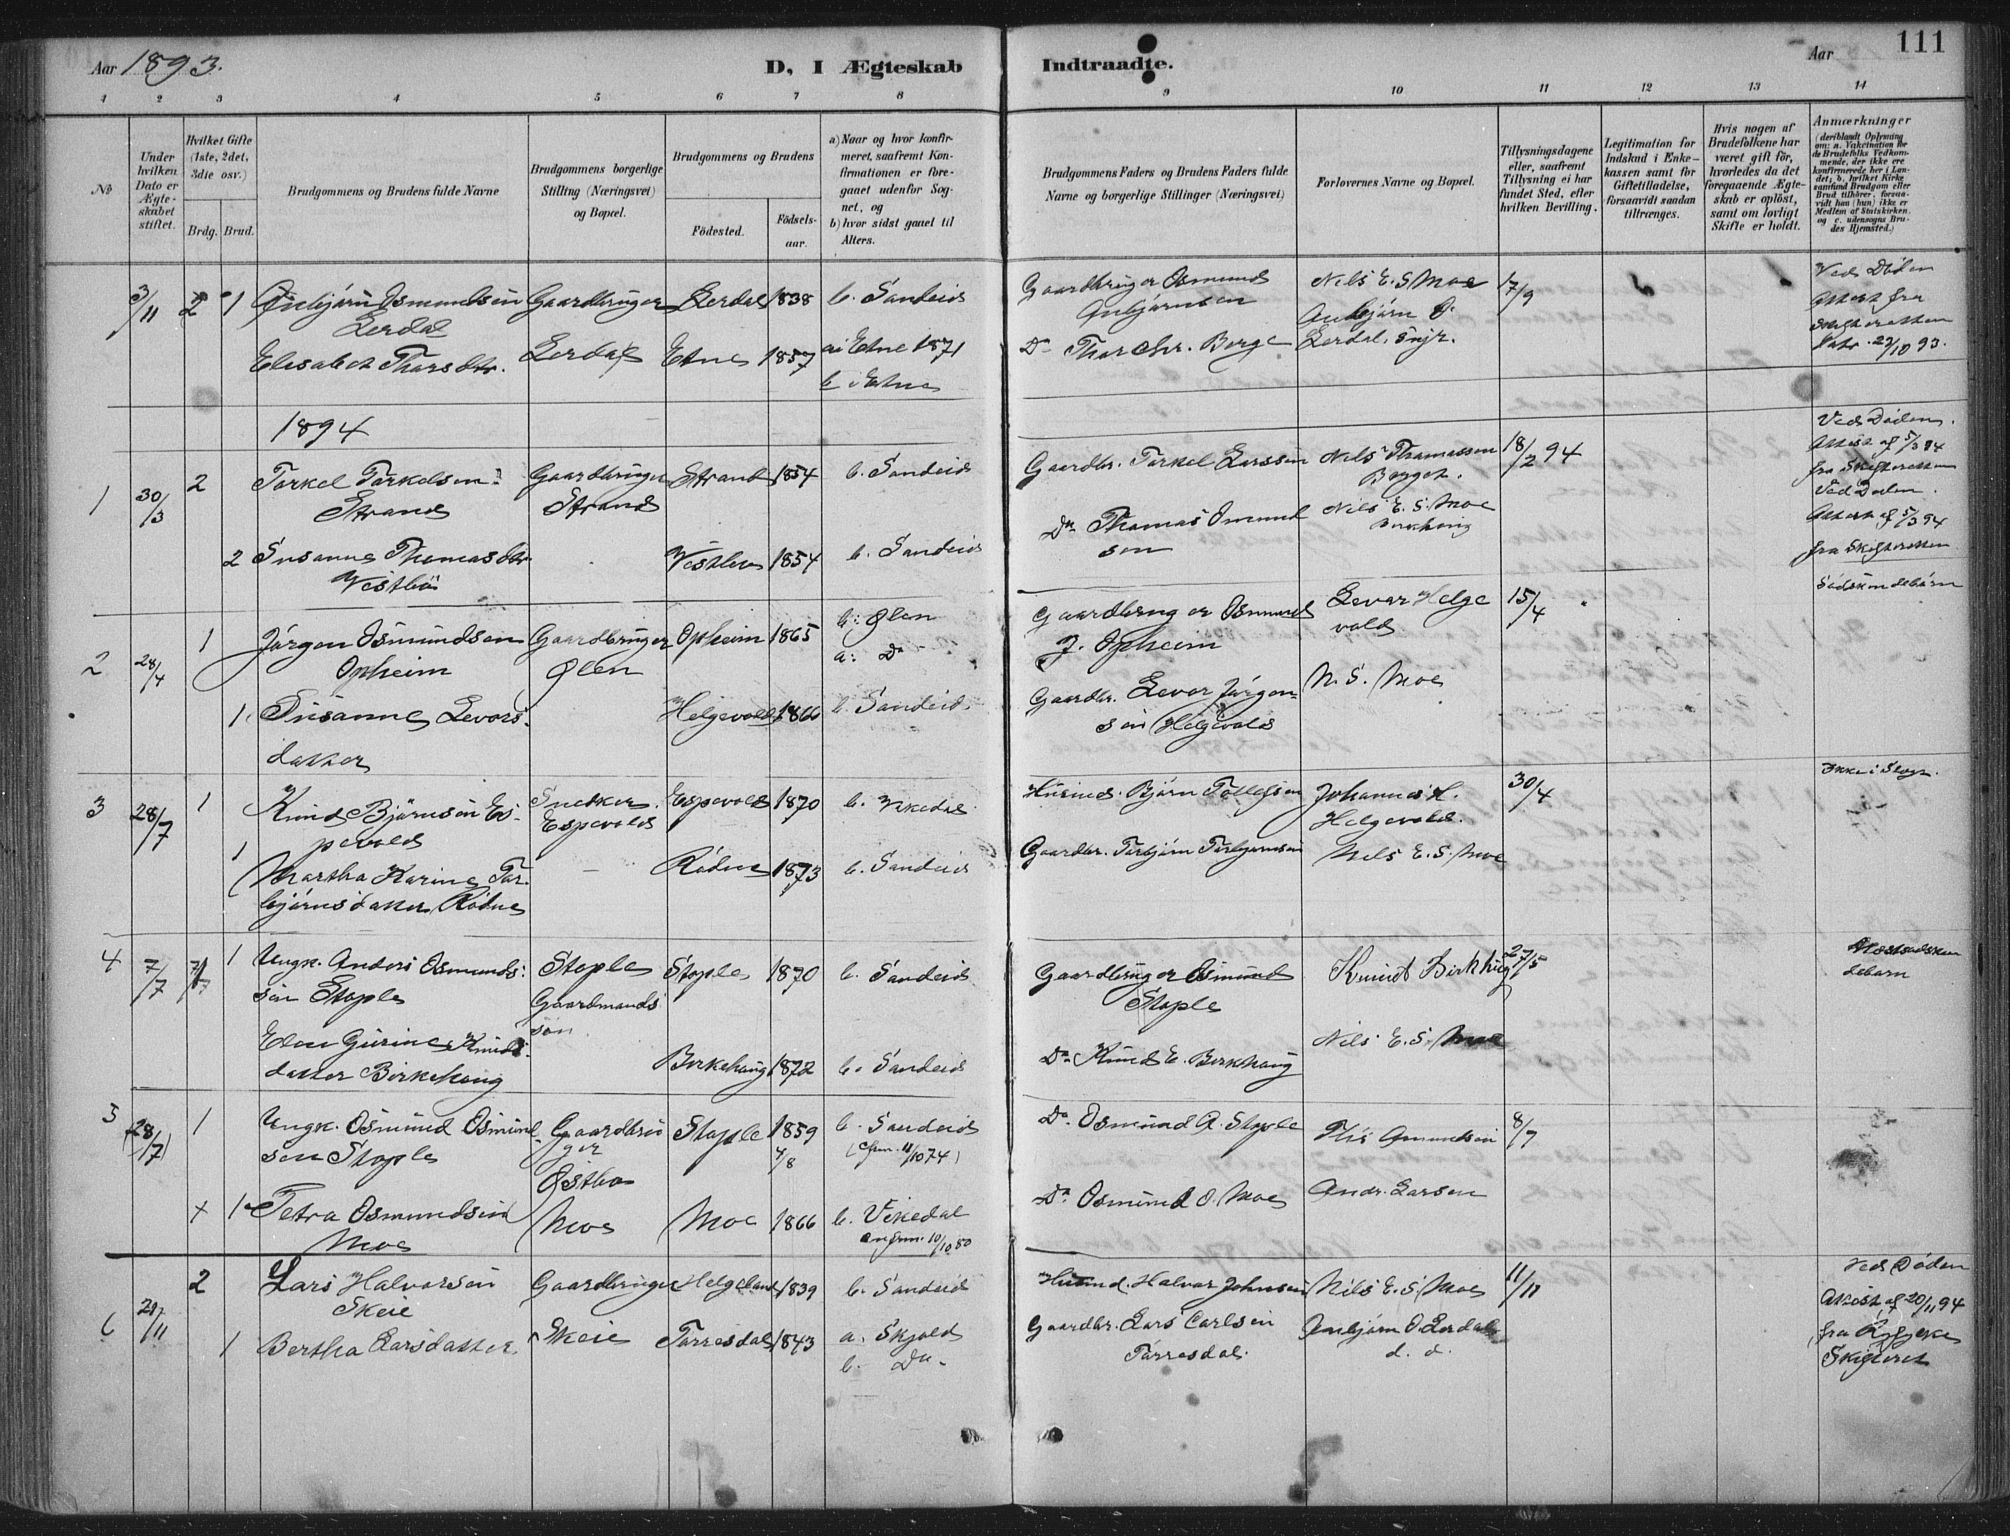 Aar 1893.
D, I Ægteskab Indtraadte.
Aar
111
1 2 3 4 5 6 7 8 9 10 11 12 13 14
No
Under hvilken Dato er Ægteskabet stiftet.
Hvilket Gifte (1ste, 2det, 3die osv.)
Brdg. Brud.
Brudgommens og Brudens fulde Navne
Brudgommens borgerlige Stilling (Næringsvei) og Bopæl.
Brudgommens og Brudens
Fødested.
Fødselsaar.
a) Naar og hvor konfirmeret, saafremt Konfirmationen er foregaaet udenfor Sognet, og
b) hvor sidst gaaet til Alters.
Brudgommens Faders og Brudens Faders fulde Navne og borgerlige Stillinger (Næringsvei)
Forlovernes Navne og Bopæl.
Tillysningsdagene eller, saafremt Tillysning ei har fundet Sted, efter hvilken Bevilling.
Legitimation for Indskud i Enkekassen samt for Giftetilladelse, forsaavidt saadan tiltrænges.
Hvis nogen af Brudefolkene har været gift før, hvorledes da det foregaaende Ægteskab er opløst, samt om lovligt Skifte er holdt.
Anmærkninger (deriblandt Oplysning om: a. Vakcination for de Brudefolks Vedkommende, der ikke ere konfirmerede her i Landet; b. hvilket Kirkesamfund Brudgom eller Brud tilhører, forsaavidt han (hun) ikke er Medlem af Statskirken, og c. udensogns Brudes Hjemsted.)
3/11 2 1 Anbjørn Osmundsen Gaardbruger Lerdal 1838 b. Sandeid
Lerdal
Elisabet Thorsdtr. Lerdal Etne 1857 a. i Etne 1871
b. i Etne
Gaardbruger Osmund Nils E. S. Moe 17/9
Anbjørnsen Anbjørn O.
Do Thor Chr. Berge Lerdal
Ved Døden
Attest fra
Skifteretten
Datr. 23/10 93.
1894
1 30/3 2 Torkel Torkelsen Gaardbruger Strand 1854 b. Sandeid
Strand Strand
2 Susanne Thomasdtr Vestbø 1854 b. Sandeid
Vestbø
Gaardbr. Torkel Larssen Nils Thomassen 18/2 94
Berget.
Do Thomas Osmund Nils E. S. Moe
sen Birkhaug
Ved Døden.
Attest af 5/3 94
fra Skifteretten
Ved Døden.
Attest af 5/3 94
fra Skifteretten
Sødskendebørn
2 28/4 1 Jørgen Osmundsen Gaardbruger Opheim 1865 b: Ølen
Opheim Ølen a: Do
1 Susanne Levors Helgevold 1866 b. Sandeid
datter
Gaardbruger Osmund Levor Helge 15/4
J. Opheim vold
Gaardbr. Levor Jørgen N. S. Moe
sen Helgevold
3 28/7 1 Knud Bjørnsen Es Snedker Espevold 1870 b. Vikedal
pevold Espevold
1 Martha Karine Tor Rødne 1873 b. Sandeid
bjørnsdatter Rødne
Husmd. Bjørn Tollefsen Johannes H. 30/4
Helgevold.
Gaardbr. Torbjørn Torbjørnsen Nils E. S. Moe
Ikke i Slægt.
4 7/7 1 Ungk. Anders Osmunds Stople Stople 1870 b. Sandeid
søn Stople Gaardmands
søn
Elen Gurine Knuds
datter Birkehaug Birkehaug 1872 b. Sandeid
Gaardbruger Osmund Knudt Birkhaug 27/5
Stople
Nils E. S. Moe
Do Knud E. Birkhaug
Næstsødsken
debørn
5 28/7 1 Ungk. Osmund Osmund Gaardbru Stople 1859 b. Sandeid
sen Stople ger 4/8 (Cfrm. 11/10 74)
Østbø
+ 1 Petra Osmundsen Moe Moe 1866 b. Vikedal
Moe confirm. 10/10 80
Do Osmund A. Stople Amundsen 8/7
Do Osmund O. Moe Andr. Larsen
6 29/11 2 Lars Halvorsen Gaardbruger Helgeland 1839 b. Sandeid
Skeie
1 Bertha Larsdatter Skeie Torresdal 1843 a. Skjold
b. Do
Husmd. Halvor Johnsen Nils E. S. Moe 11/11
Gaardbr. Lars Carlsen Anbjørn O. Lerdal
Torresdal. d. d.
Ved Døden
Attest af 20/11 94
fra Ryfylke
Skifteret